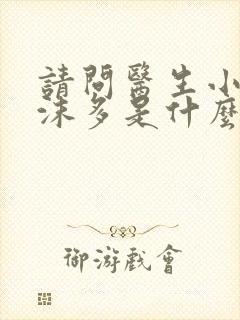 請問醫生小
沫多是什麼
御游戲會